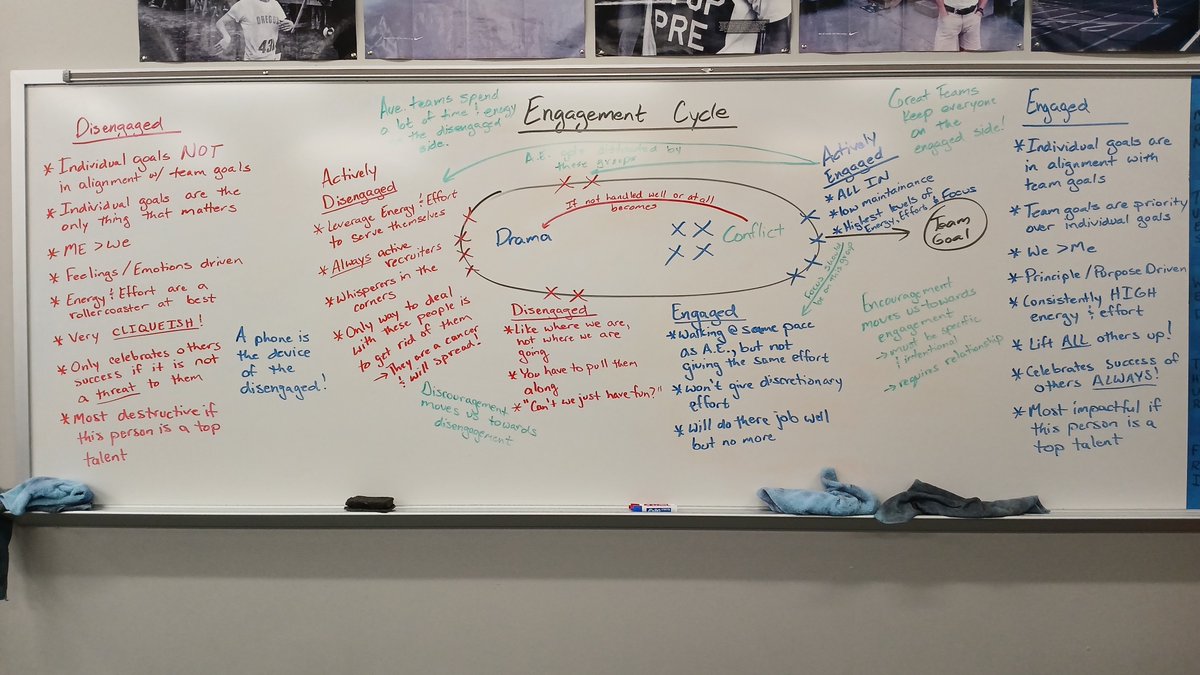 OREGON
43
STOP
PRE
Engagement Cycle
Disengaged
* Individual goals NOT
in alignment w/ team goals
* Individual goals are the
only thing that matters
* ME > We
* Feelings / Emotions driven
* Energy & Effort are a
rollercoaster at best
* Very CLIQUEISH!
* Only celebrates others
success if it is not
a threat to them
* Most destructive if
this person is a top
talent
A phone is
the device
of the
disengaged!
Ave. teams spend
a lot of time & energy
the disengaged
side.
Actively
Disengaged
* Leverage Energy & Effort
to serve themselves
* Always active
recruiters
* Whisperers in the
corners
* Only way to deal
with these people is
to get rid of them
→ They are a cancer
& will spread!
Discouragement
moves us towards
disengagement
A.E. gets distracted by
these groups
If not handled well or at all
becomes
Drama
Conflict
Disengaged
* Like where we are,
not where we are
going
* You have to pull them
along
* "Can't we just have fun?"
Engaged
* Walking @ same pace
as A.E., but not
giving the same effort
* Won't give discretionary
effort
* Will do there job well
but no more
Focus should
be on this group
Actively
Engaged
* ALL IN
* low maintainance
* Highest levels of
Energy, Effort, & Focus
Team
Goal
Great Teams
keep everyone
on the
engaged side!
Encouragement
moves us towards
engagement
→ must be specific
& intentional
→ requires relationship
Engaged
* Individual goals are
in alignment with
team goals
* Team goals are priority
over individual goals
* We > Me
* Principle / Purpose Driven
* Consistently HIGH
energy & effort
* Lift ALL others up!
* Celebrates success of
others ALWAYS!
* Most impactful if
this person is a
top talent